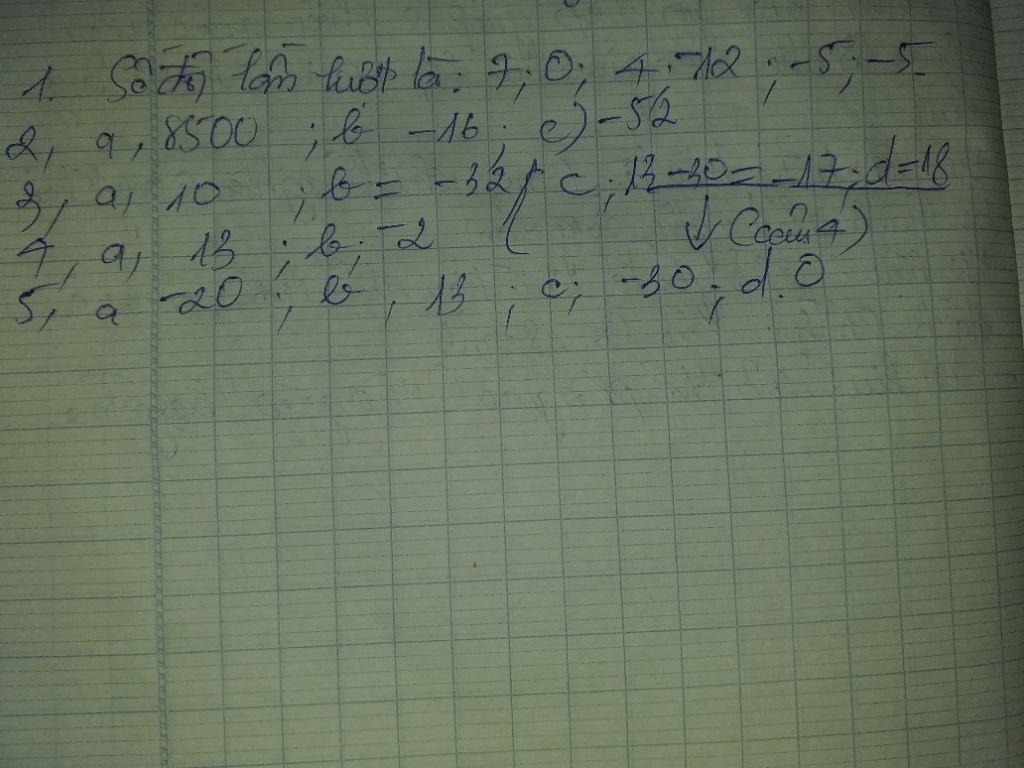 1. Số đó lần lượt là: 7; 0; 4; -12; -5; -5
2, a, 8500; b -16; c) -52
3, a, 10; b = -32 / c; 13-30 = -17; d=18
(câu 4)
4, a, 13; b; -2
5, a -20; b, 13; c; -30; d. 0